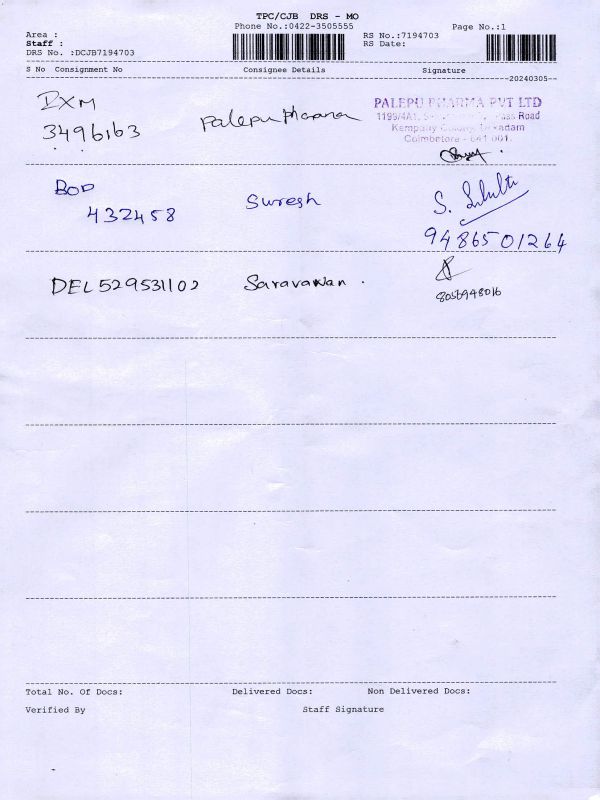 TPC/CJB DRS - MO
Phone No.:0422-3505555
Page No.:1
Area :
RS No.:7194703
Staff :
RS Date:
DRS No. :DCJB7194703
S No Consignment No Consignee Details Signature
20240305
3496163
Palepu Pharma
PALEPU PHARMA PVT LTD
1199/4A1, Road
Kempatty Colony,
Coimbatore - 641 001.
BOD
432458
Suresh
S.
9486501264
DEL529531102
Saravanan .
8056948016
Total No. Of Docs: Delivered Docs: Non Delivered Docs:
Verified By Staff Signature